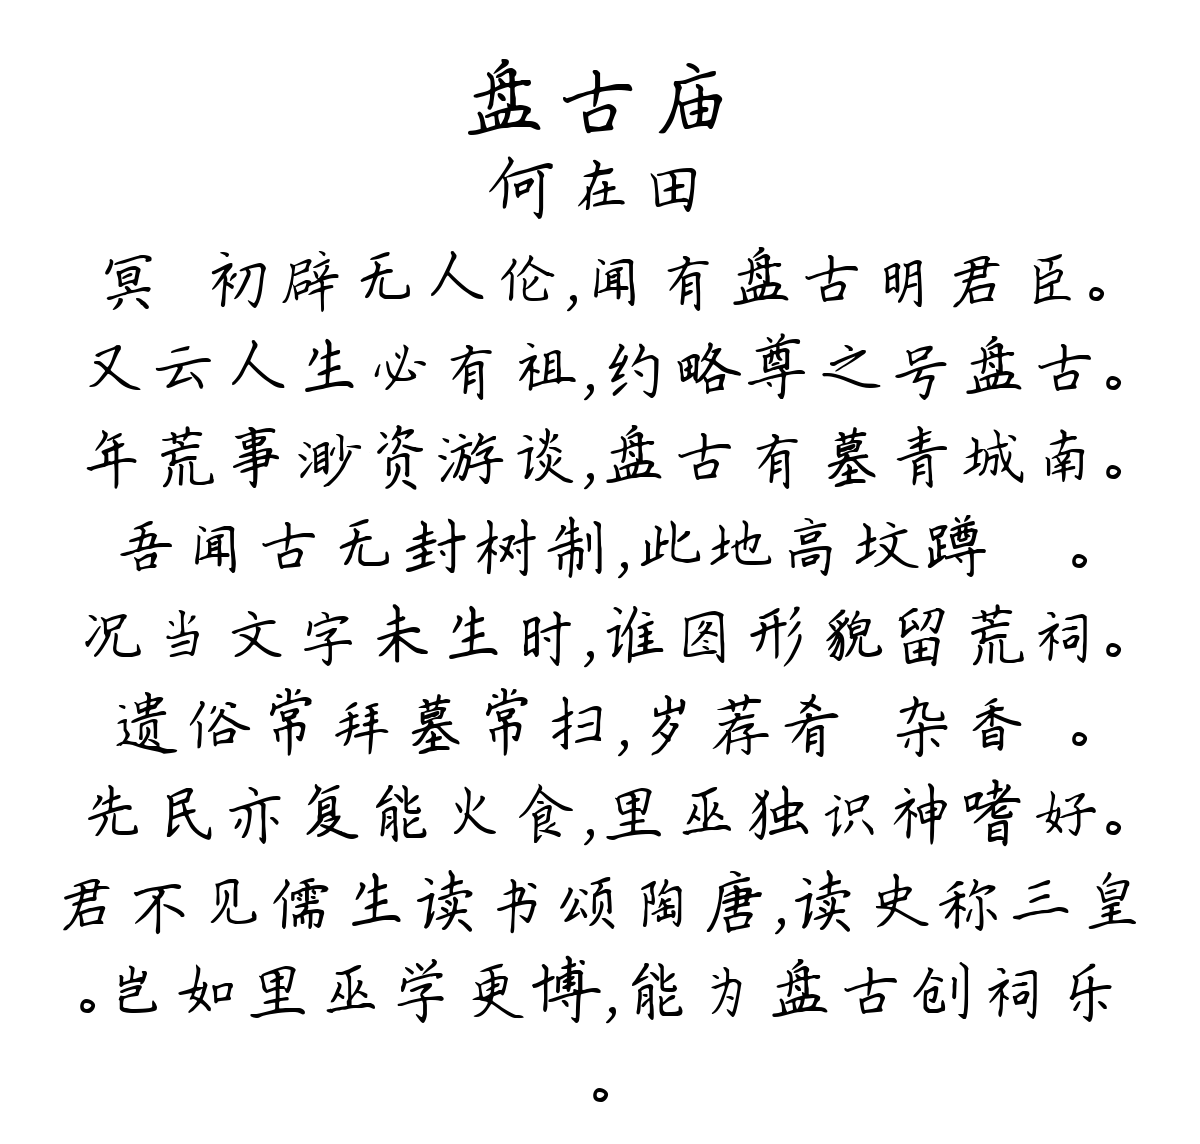 盘古庙
何在田
冥 初辟无人伦,闻有盘古明君臣。
又云人生必有祖,约略尊之号盘古。
年荒事渺资游谈,盘古有墓青城南。
吾闻古无封树制,此地高坟蹲 。
况当文字未生时,谁图形貌留荒祠。
遗俗常拜墓常扫,岁荐肴 杂香 。
先民亦复能火食,里巫独识神嗜好。
君不见儒生读书颂陶唐,读史称三皇
。岂如里巫学更博,能为盘古创祠乐
。